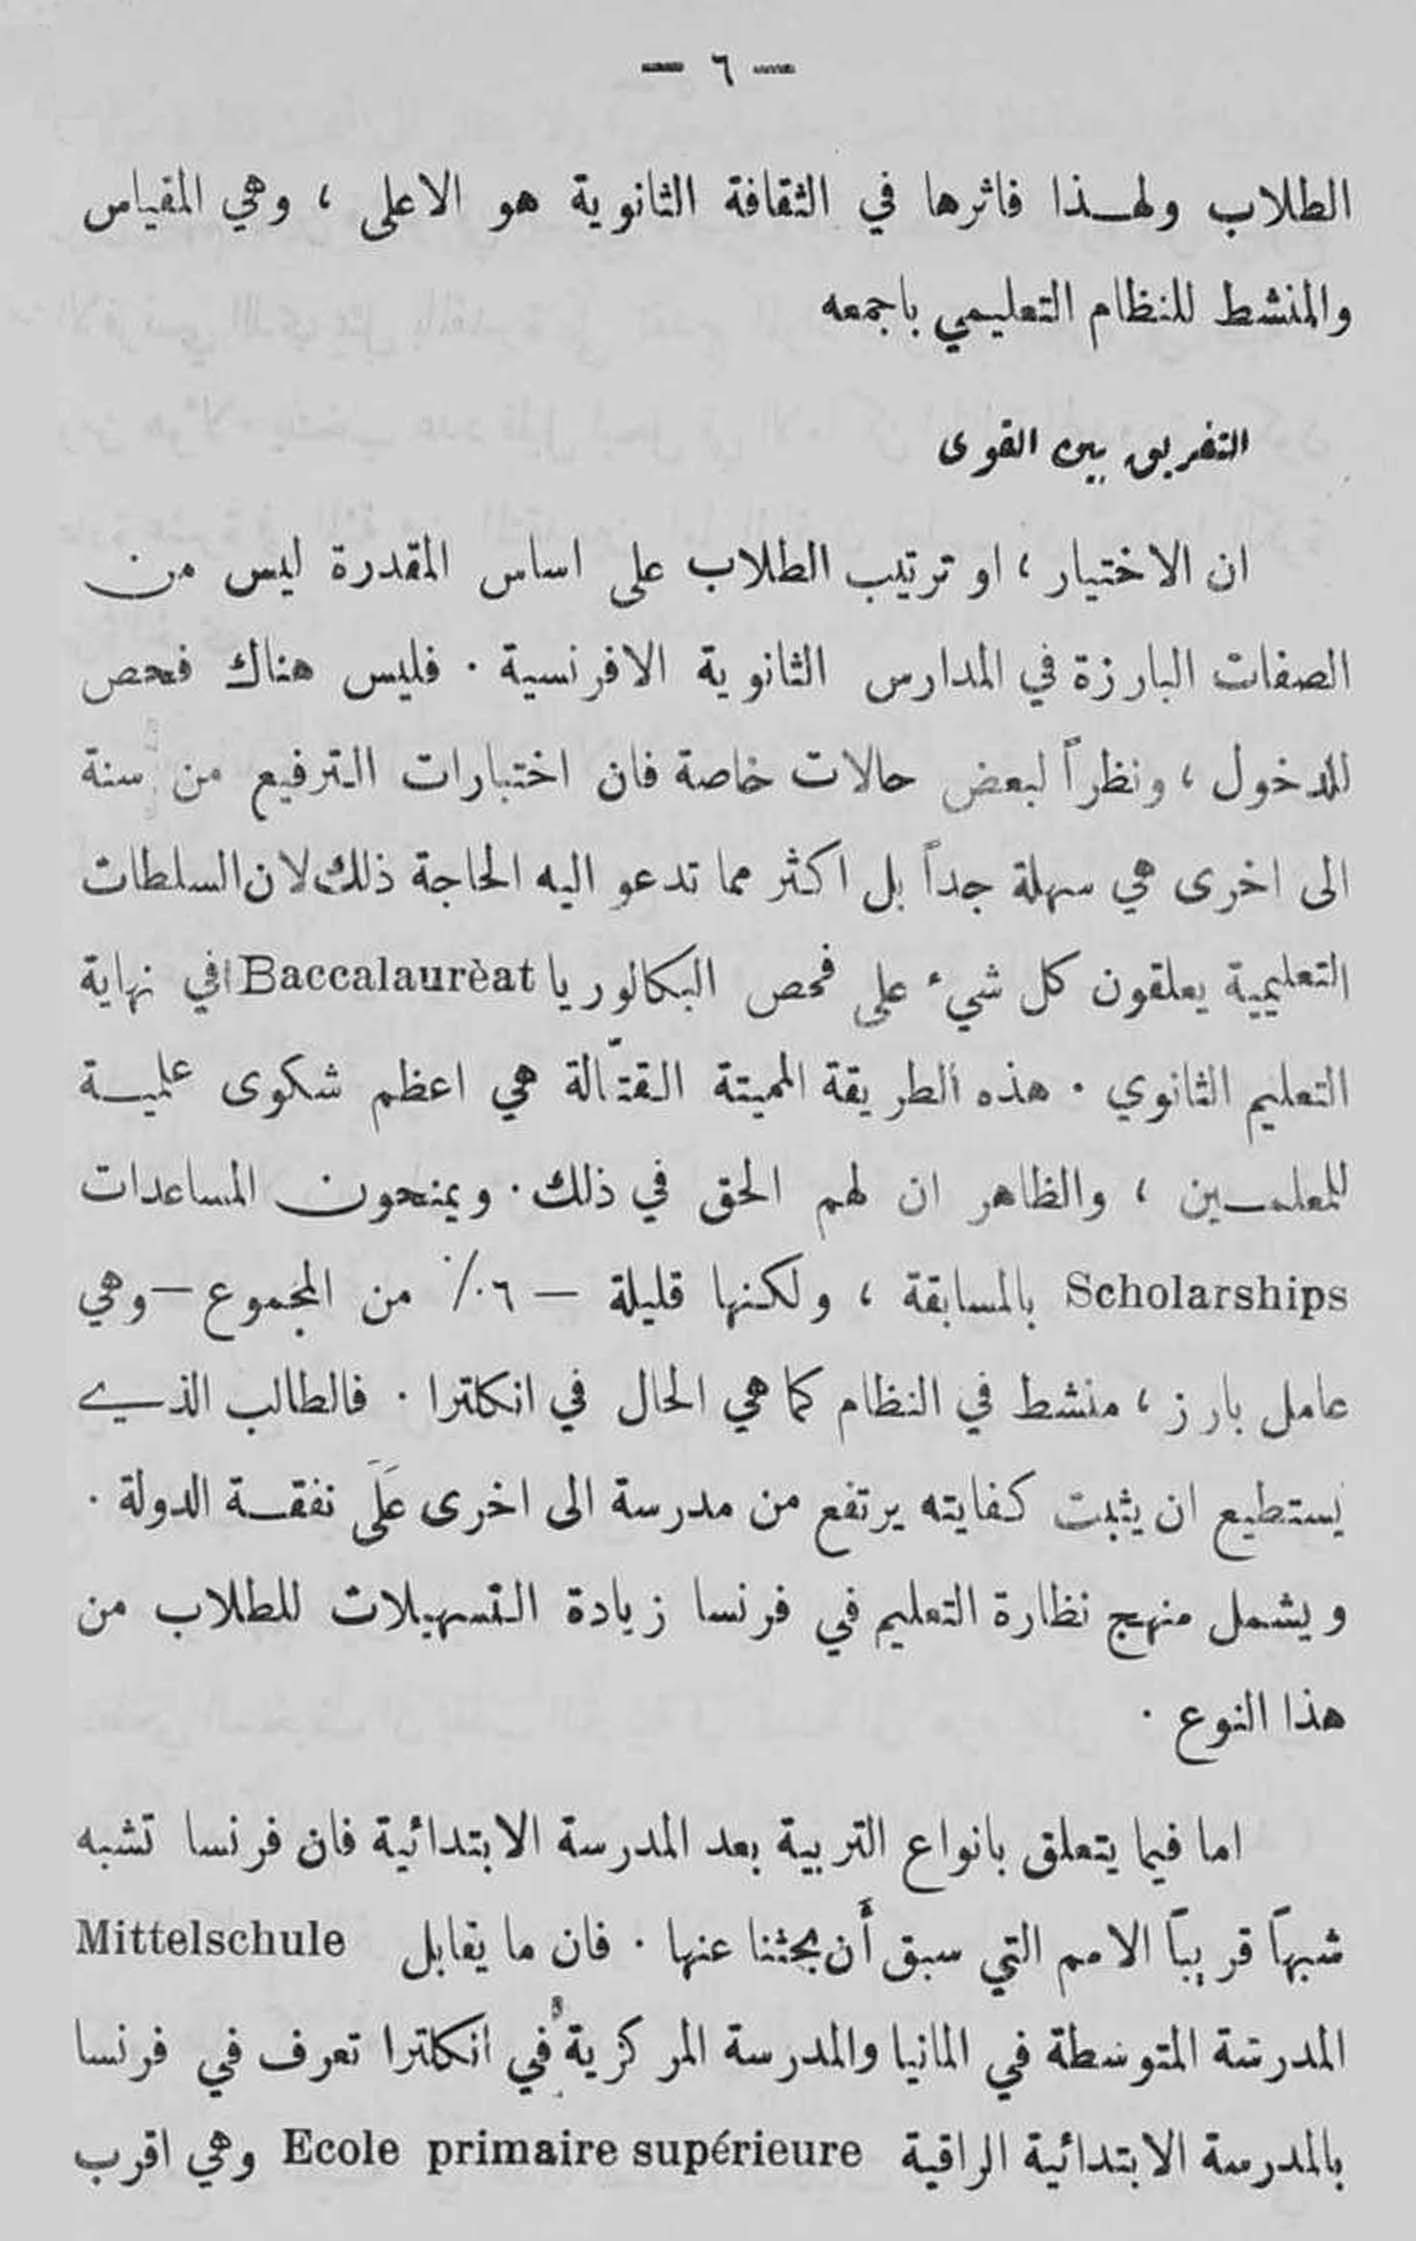 — ٦ —
الطلاب ولهـذا فاثرها في الثقافة الثانوية هو الاعلى ، وهي المقياس
والمنشط للنظام التعليمي باجمعه
التفريق بين القوى
ان الاختيار ، او ترتيب الطلاب على اساس المقدرة ليس من
الصفات البارزة في المدارس الثانوية الافرنسية . فليس هناك فحص
للدخول ، ونظراً لبعض حالات خاصة فان اختبارات الترفيع من سنة
الى اخرى هي سهلة جداً بل اكثر مما تدعو اليه الحاجة ذلك لان السلطات
التعليمية يعلقون كل شيء على فحص البكالوريا Baccalaurèat في نهاية
التعليم الثانوي . هذه الطريقة المميتة القتّالة هي اعظم شكوى علميـة
للمعلمـين ، والظاهر ان لهم الحق في ذلك . ويمنحون المساعدات
Scholarships بالمسابقة ، ولكنها قليلة — ٠٦٪ من المجموع — وهي
عامل بارز ، منشط في النظام كما هي الحال في انكلترا . فالطالب الذي
يستطيع ان يثبت كفايته يرتفع من مدرسة الى اخرى عَلَى نفقـة الدولة .
ويشمل منهج نظارة التعليم في فرنسا زيادة التسهيلات للطلاب من
هذا النوع .
اما فيما يتعلق بانواع التربية بعد المدرسة الابتدائية فان فرنسا تشبه
شبهاً قريباً الامم التي سبق أن بحثنا عنها . فان ما يقابل Mittelschule
المدرسة المتوسطة في المانيا والمدرسة المركزية في انكلترا تعرف في فرنسا
بالمدرسة الابتدائية الراقية Ecole primaire supérieure وهي اقرب